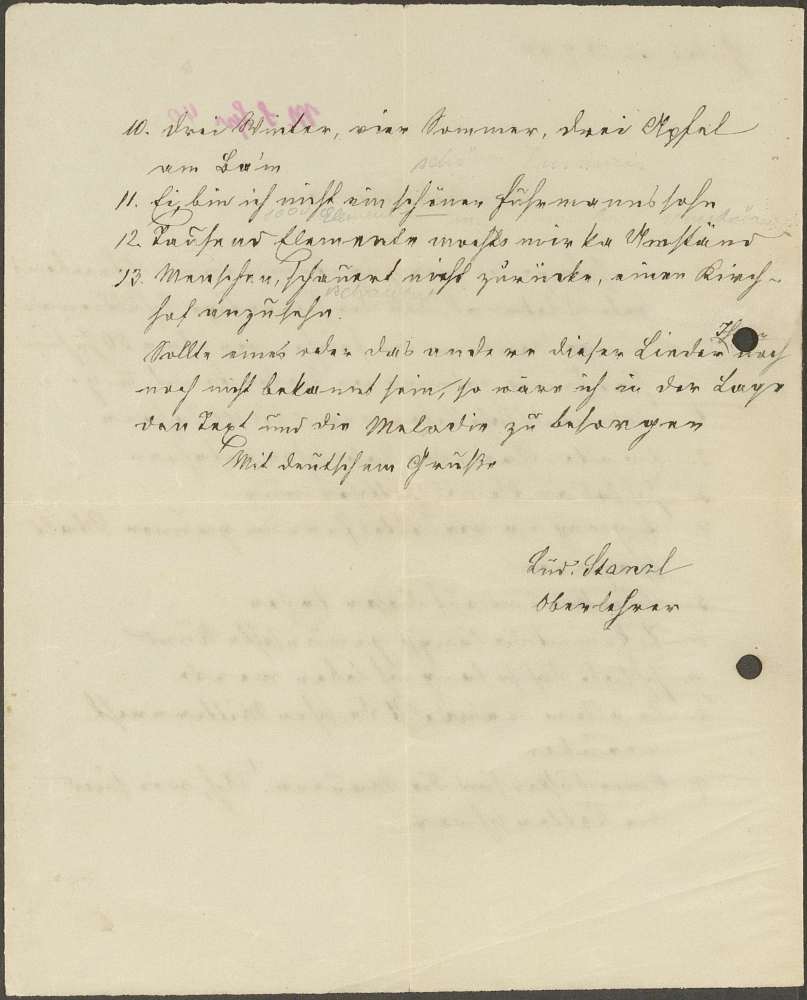 10. Drei Winter, vier Sommer, drei Apfel
am Ba'm
11. Ei, bin ich nicht ein schöner Fuhrmannssohn
12. Tausend Elemente mochts mir ka Umständ
13. Menschen, schauert nicht zurücke, einen Kirch-
hof anzusehn.
Sollte eines oder das andere dieser Lieder Ihnen noch
noch nicht bekannt sein, so wäre ich in der Lage
den Text und die Melodie zu besorgen
Mit deutschem Gruße
Lud. Stanzl
Oberlehrer